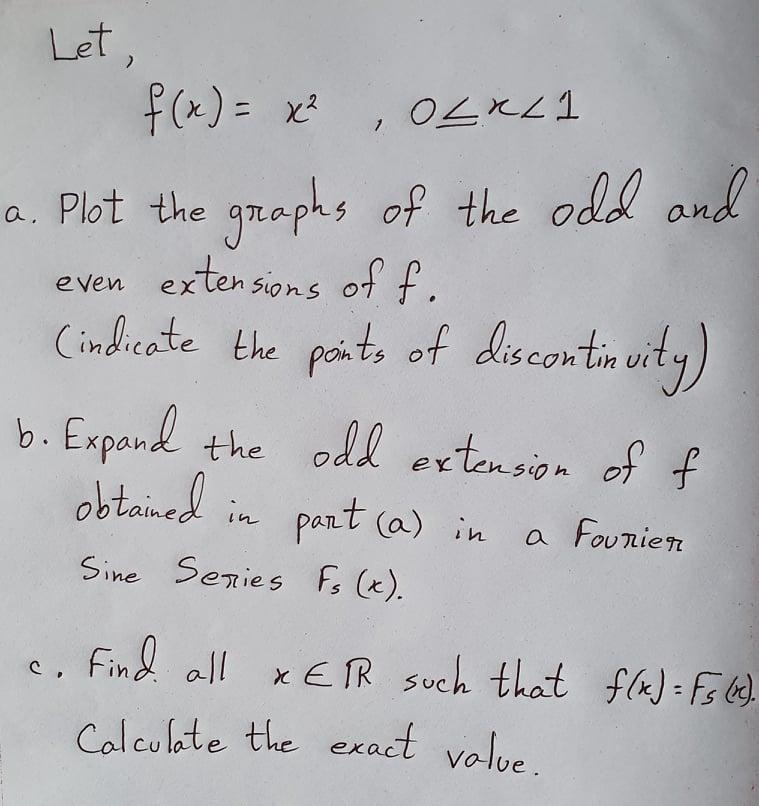 Let,
f(x) = x² , 0≤x<1
a. Plot the graphs of the odd and
even extensions of f.
(indicate the points of discontinuity)
b. Expand the odd extension of f
obtained in part (a) in a Fourier
Sine Series Fs (x).
c. Find all x ∈ ℝ such that f(x) = Fs (x).
Calculate the exact value.